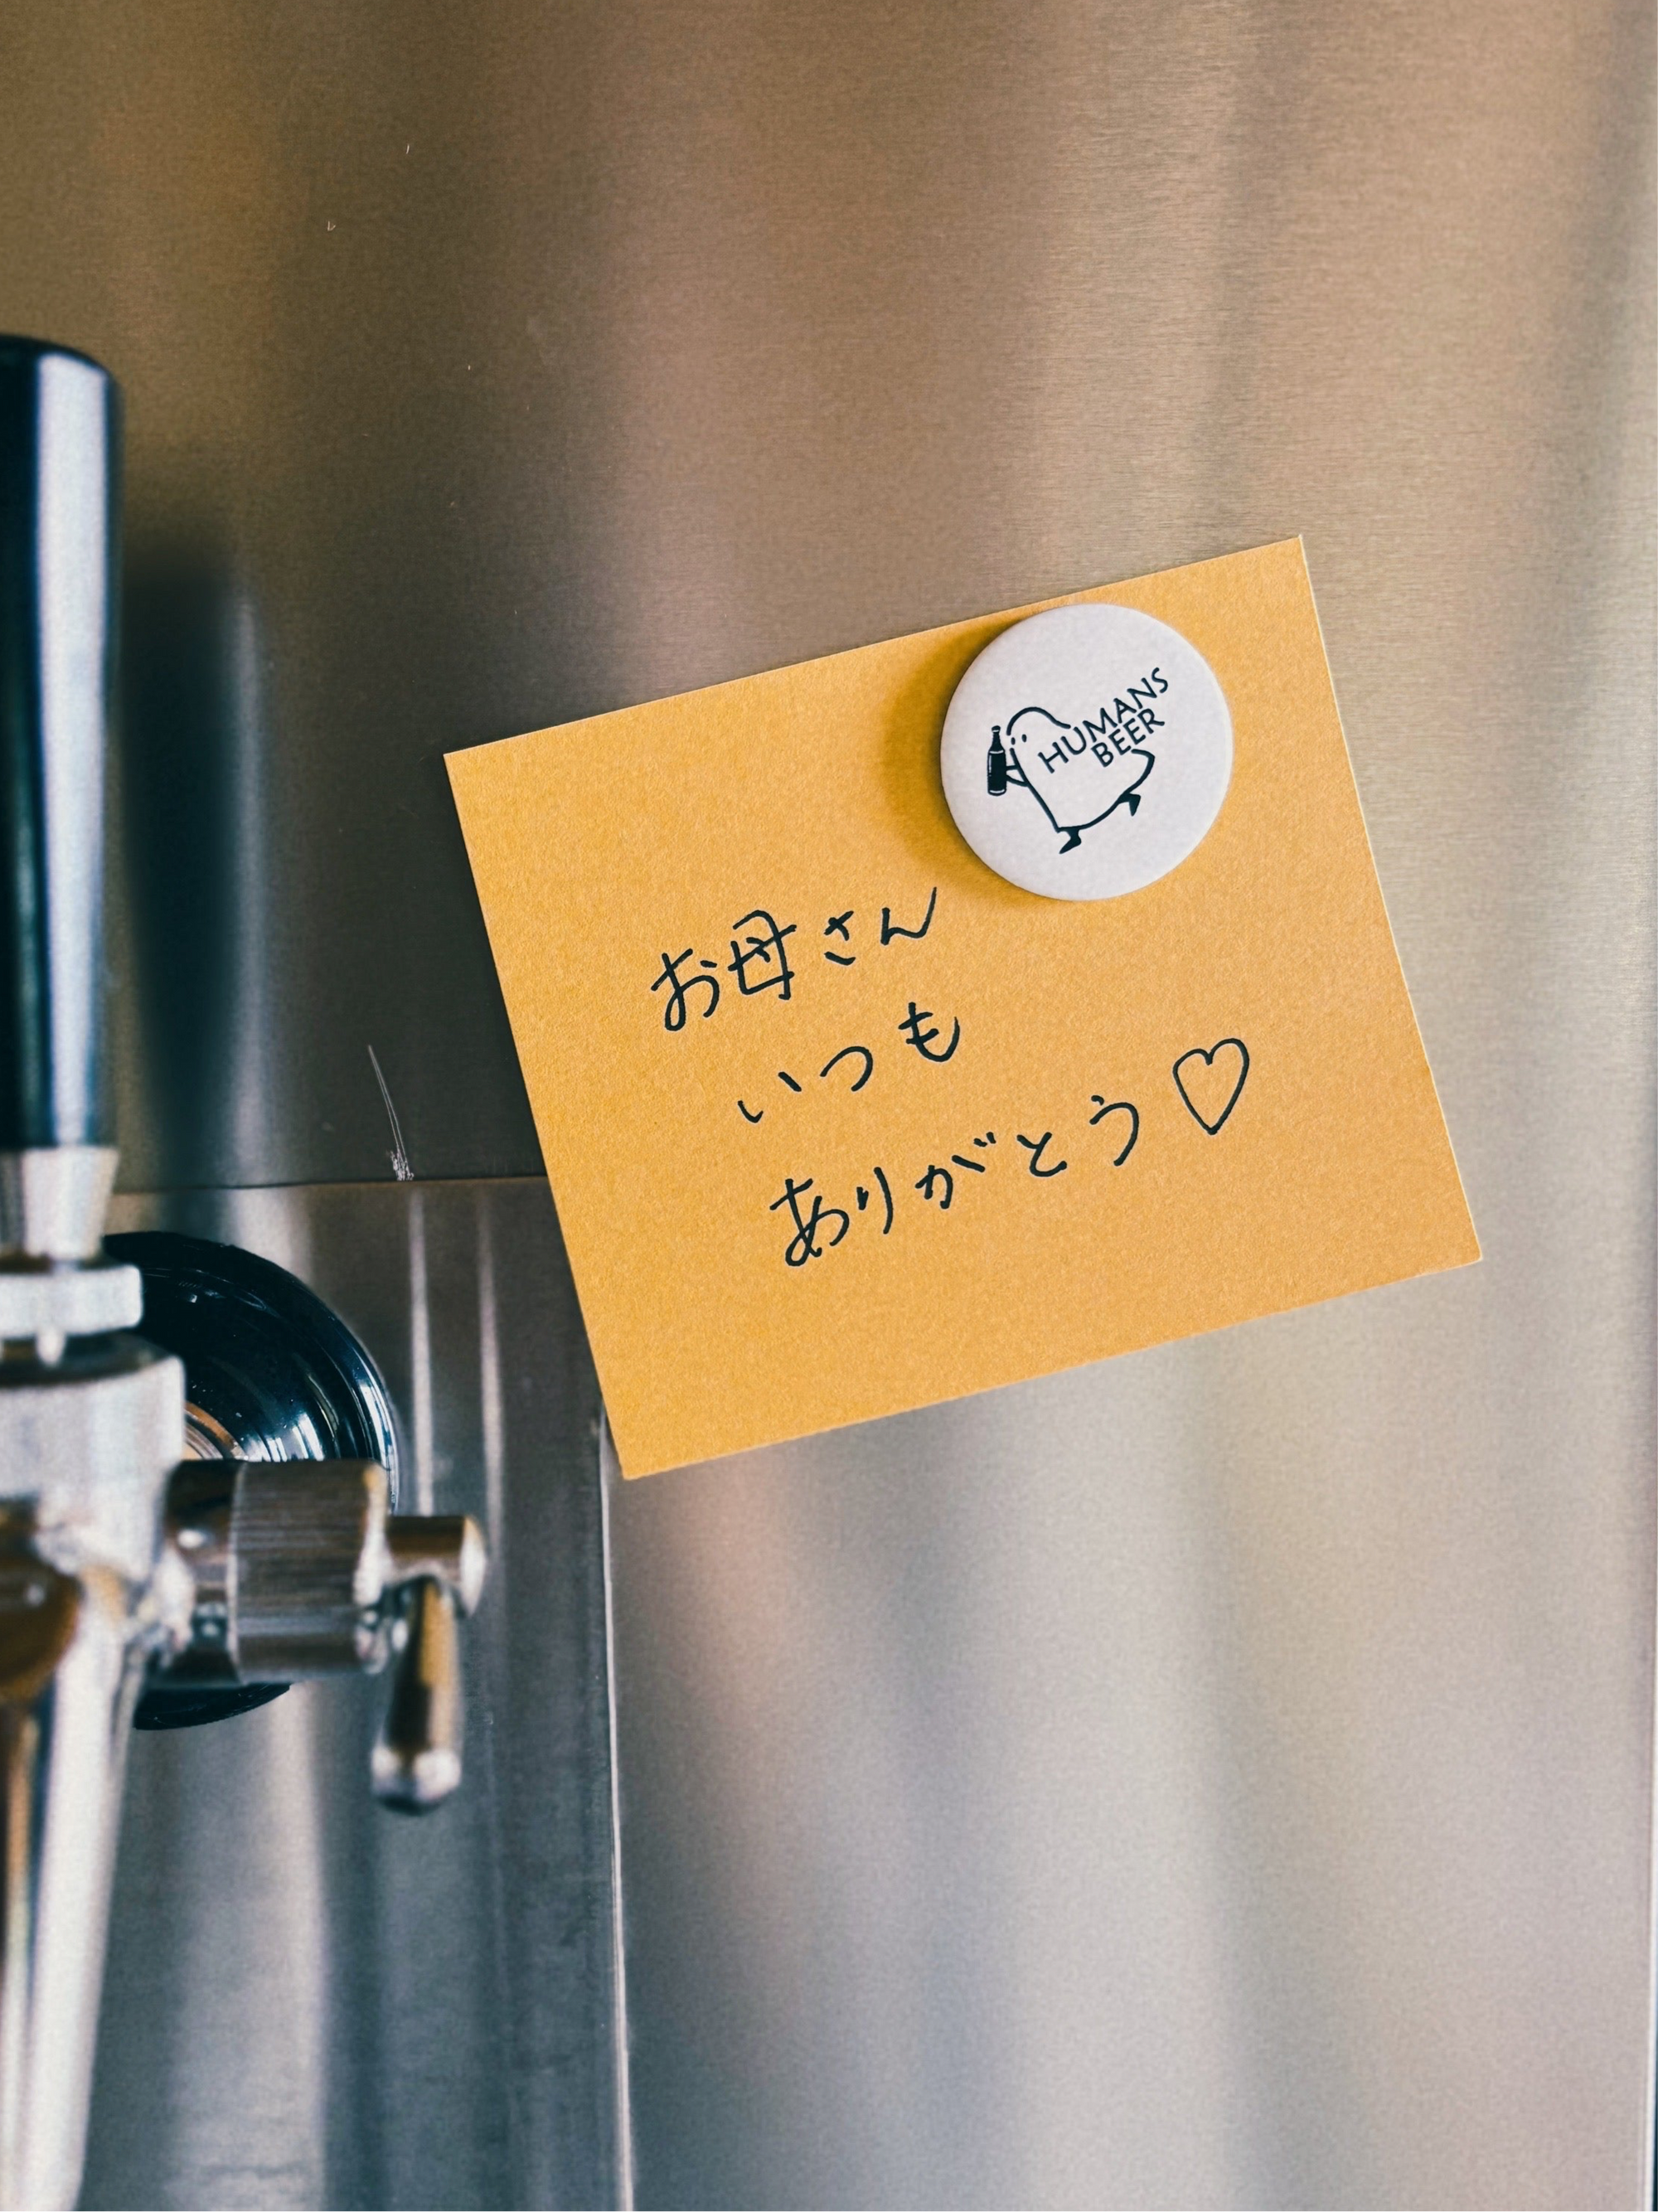 HUMANS
BEER
お母さん
いつも
ありがとう♡